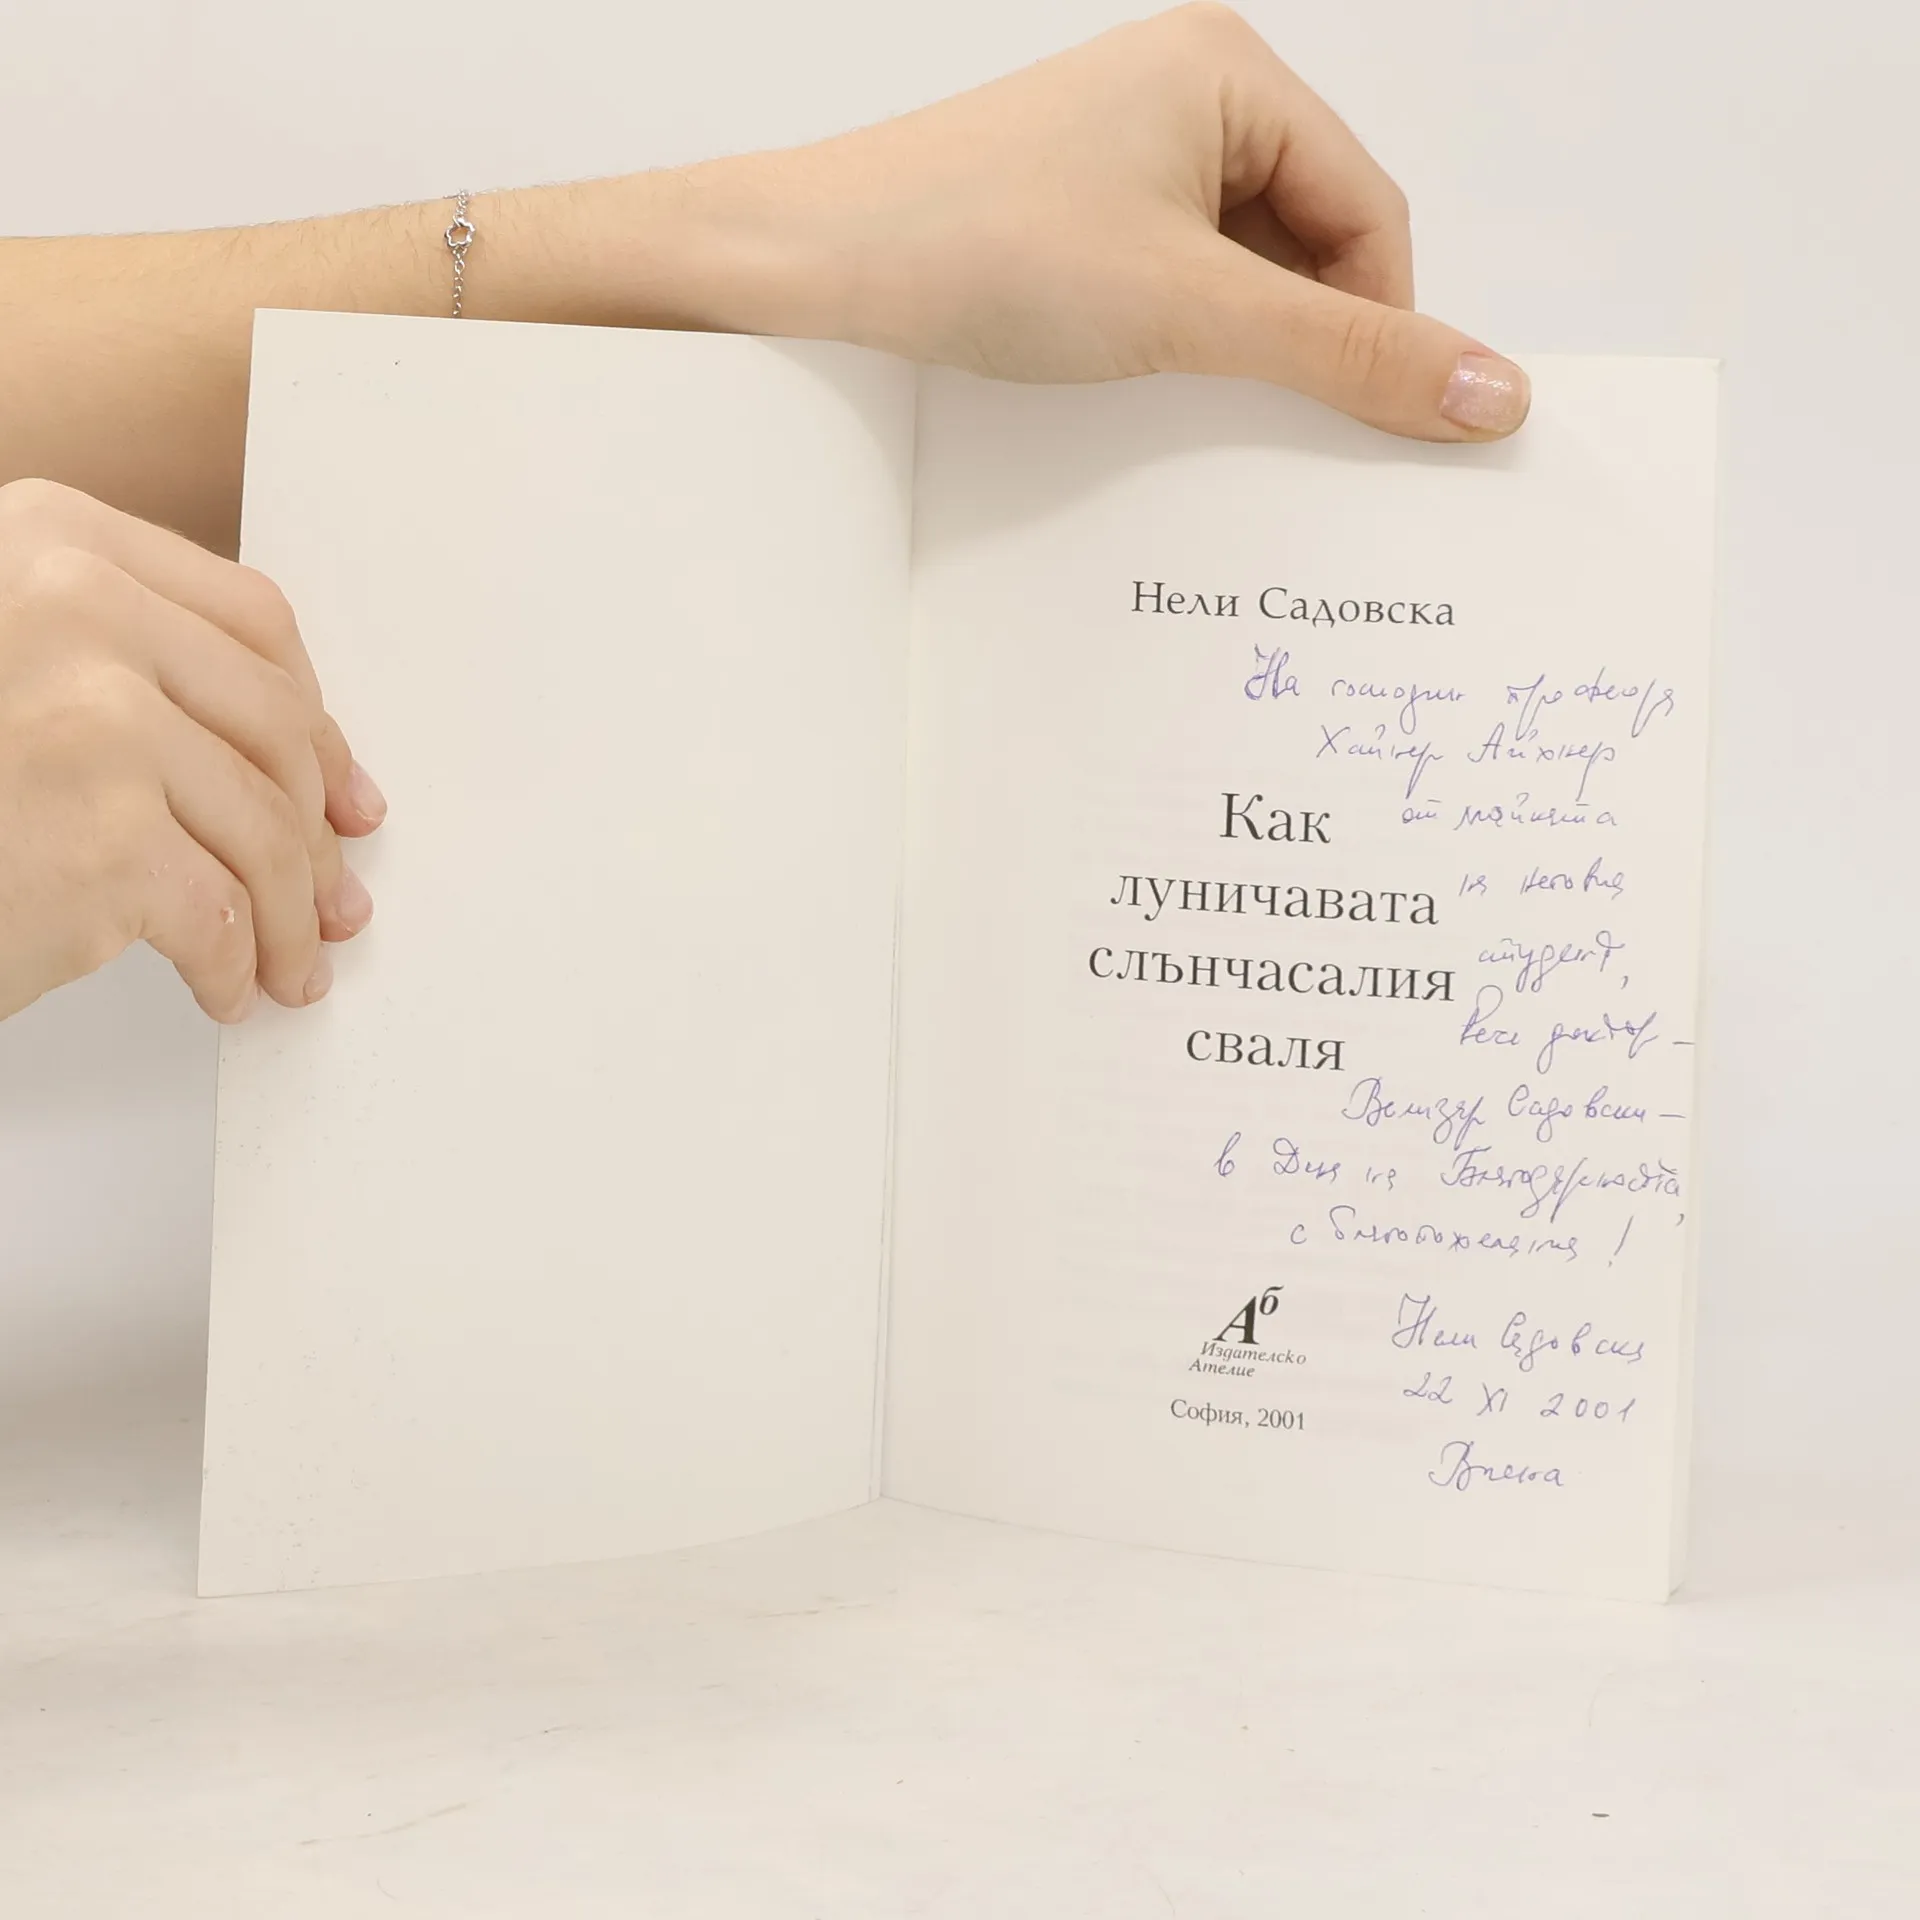 Нели Садовска
На господин професора
Хайнер Айхнер
от майката
на неговия
студент,
вече доктор –
Велизар Садовски –
в Деня на Благодарността,
с благопожелания!
Как
луничавата
слънчасалия
сваля
Нели Садовска
22 XI 2001
Виена
Аб
Издателско
Ателие
София, 2001